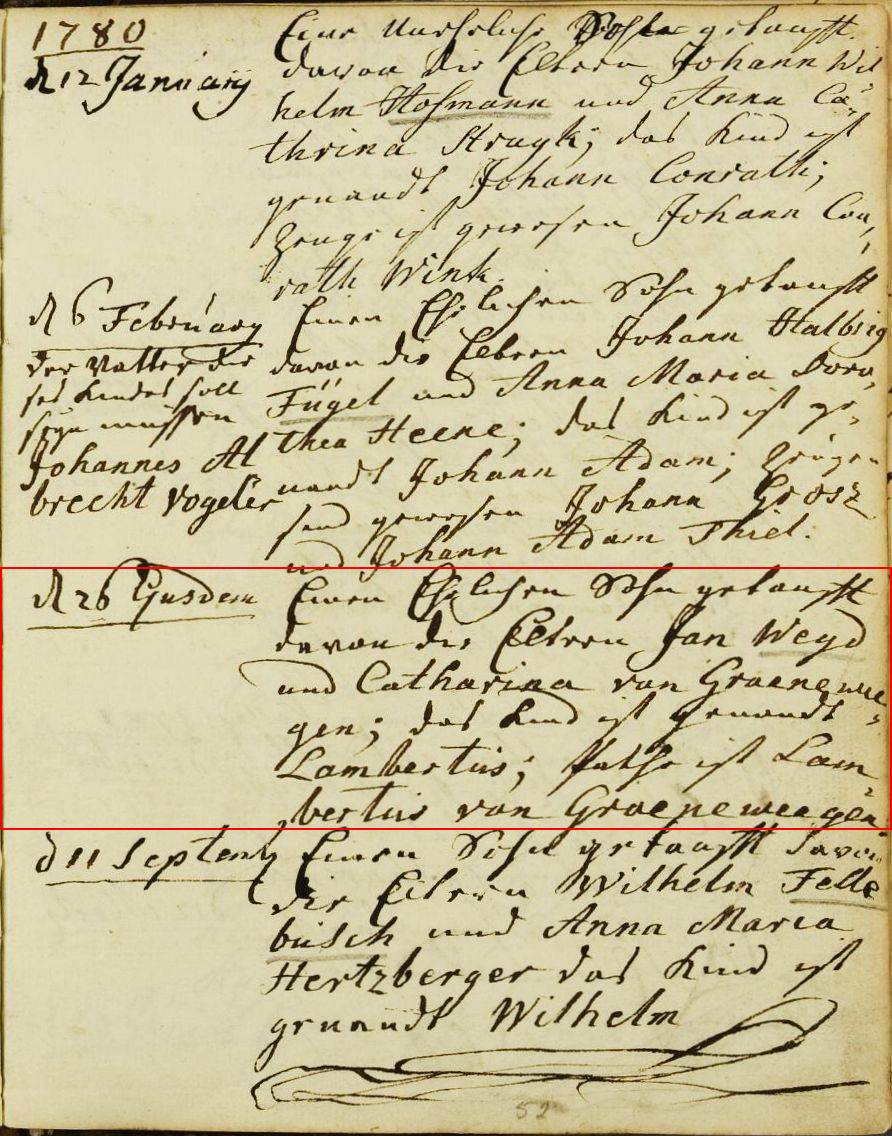 1780
d 12 Januarij
Eine Uneheliche Tochter getaufft.
davon die Eltern Johann Wil„
helm Hofmann und Anna Ca„
thrina Struyk; das Kind ist
genandt Johann Conrath;
Zeuge ist gewesen Johann Con„
rath Wink.
d 6 Februarij
Der Vatter die
ses Kindes soll
seyn müssen
Johannes Al
brecht Vogeler
Einen Ehelichen Sohn getaufft
davon die Eltern Johann Halbrig
Fügel und Anna Maria Doro„
thea Heene; das Kind ist ge„
nandt Johann Adam; Zeugen
sind gewesen Johann Grosz
und Johann Adam Thiel.
d 26 Ejusdem
Einen Ehelichen Sohn getaufft
davon die Eltern Jan Weyd
und Catharina van Groenewee„
gen; das Kind ist genandt
Lambertus; Pathe ist Lam„
bertus van Groeneweegen.
d 11 Septemb
Einen Sohn getaufft davon
die Eltern Wilhelm Felle
busch und Anna Maria
Hertzberger das Kind ist
genandt Wilhelm
52